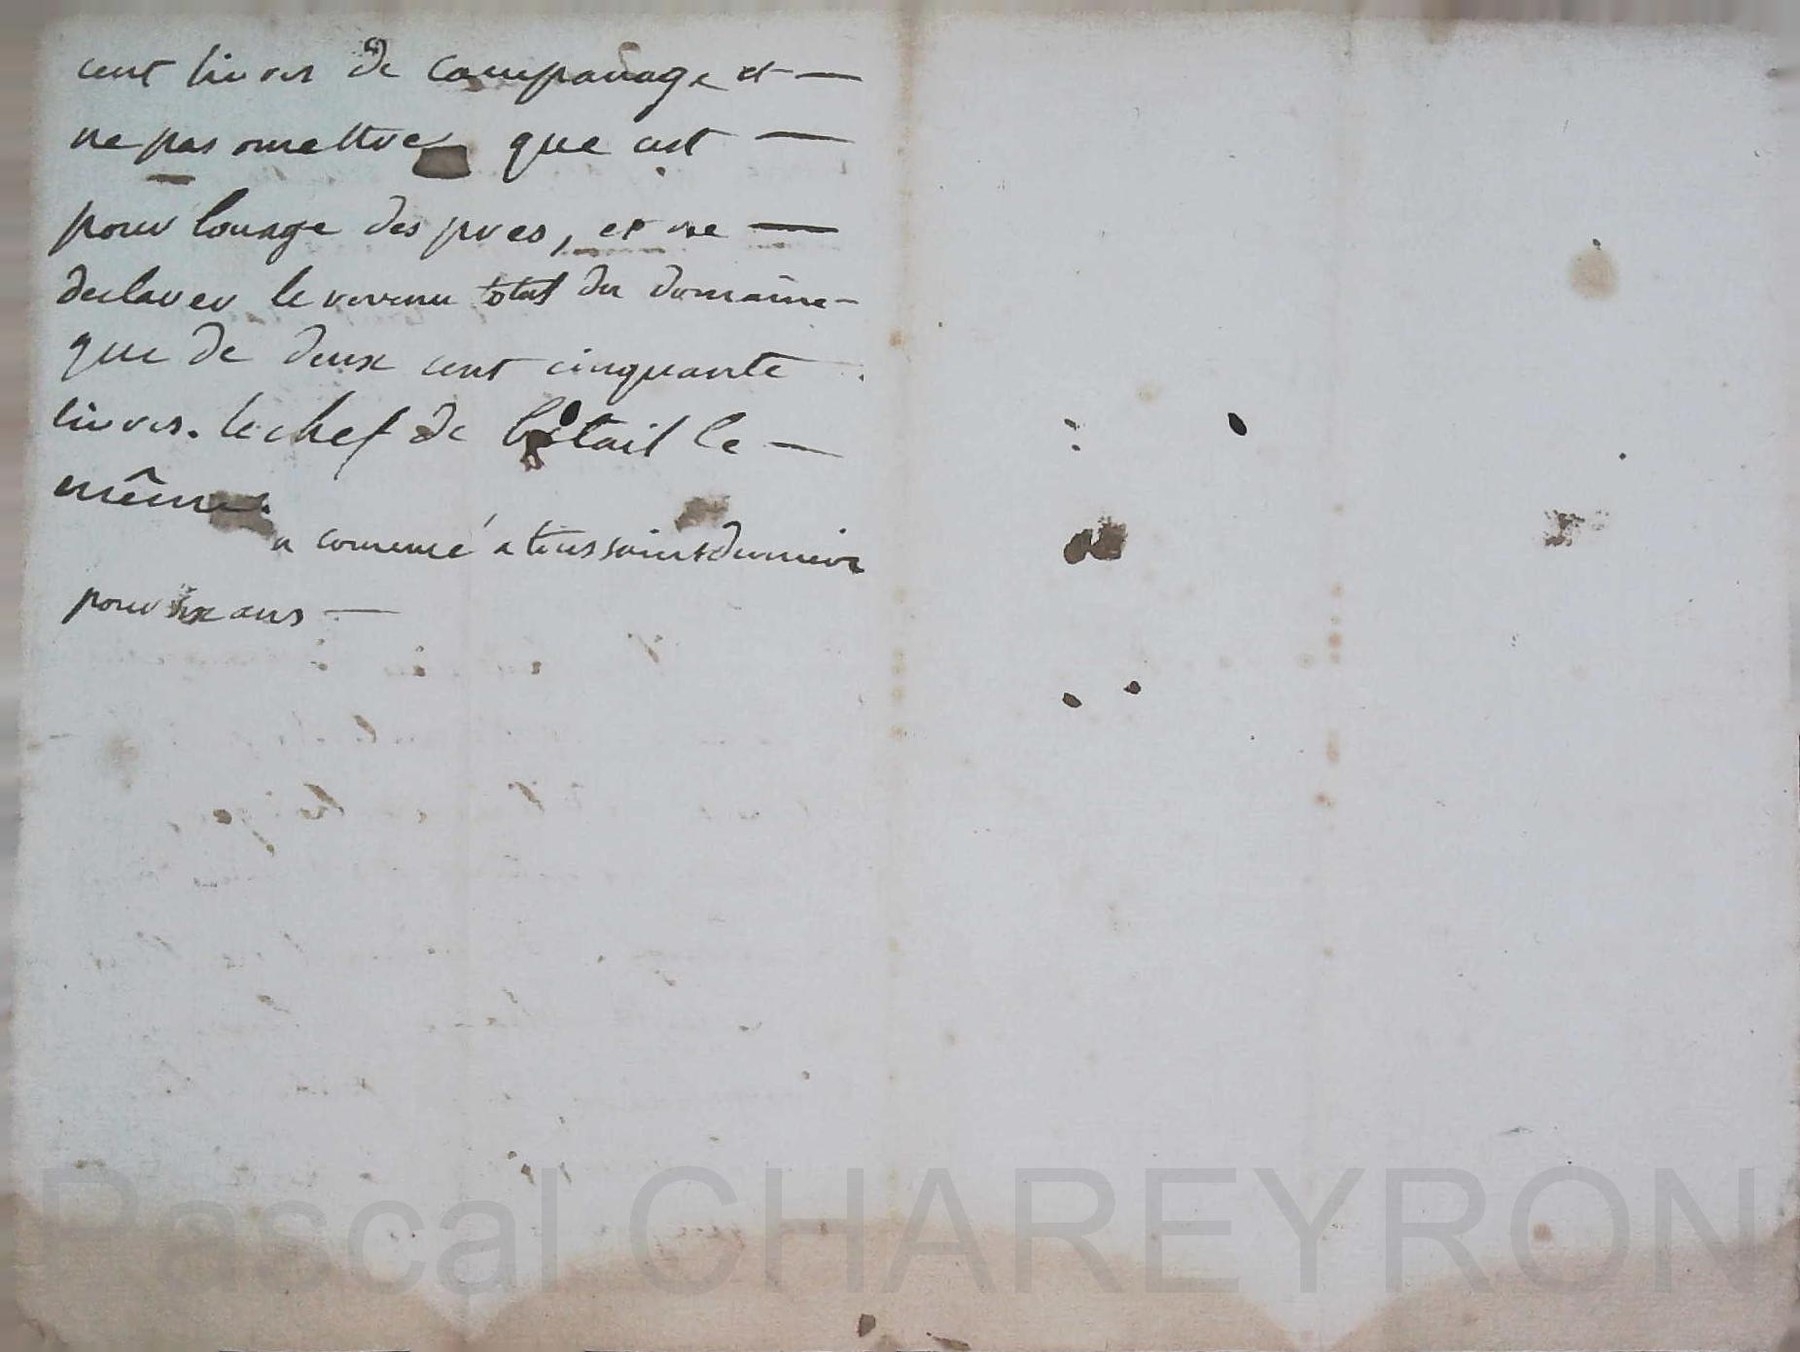 cent livres de campanage et —
ne pas omettre que cest —
pour louage des pres, et ne —
declarer le revenu total du domaine -
que de deux cent cinquante
livres. le chef de bétail le —
même.
a commencé a toussaint dernier
pour six ans —
Pascal CHAREYRON